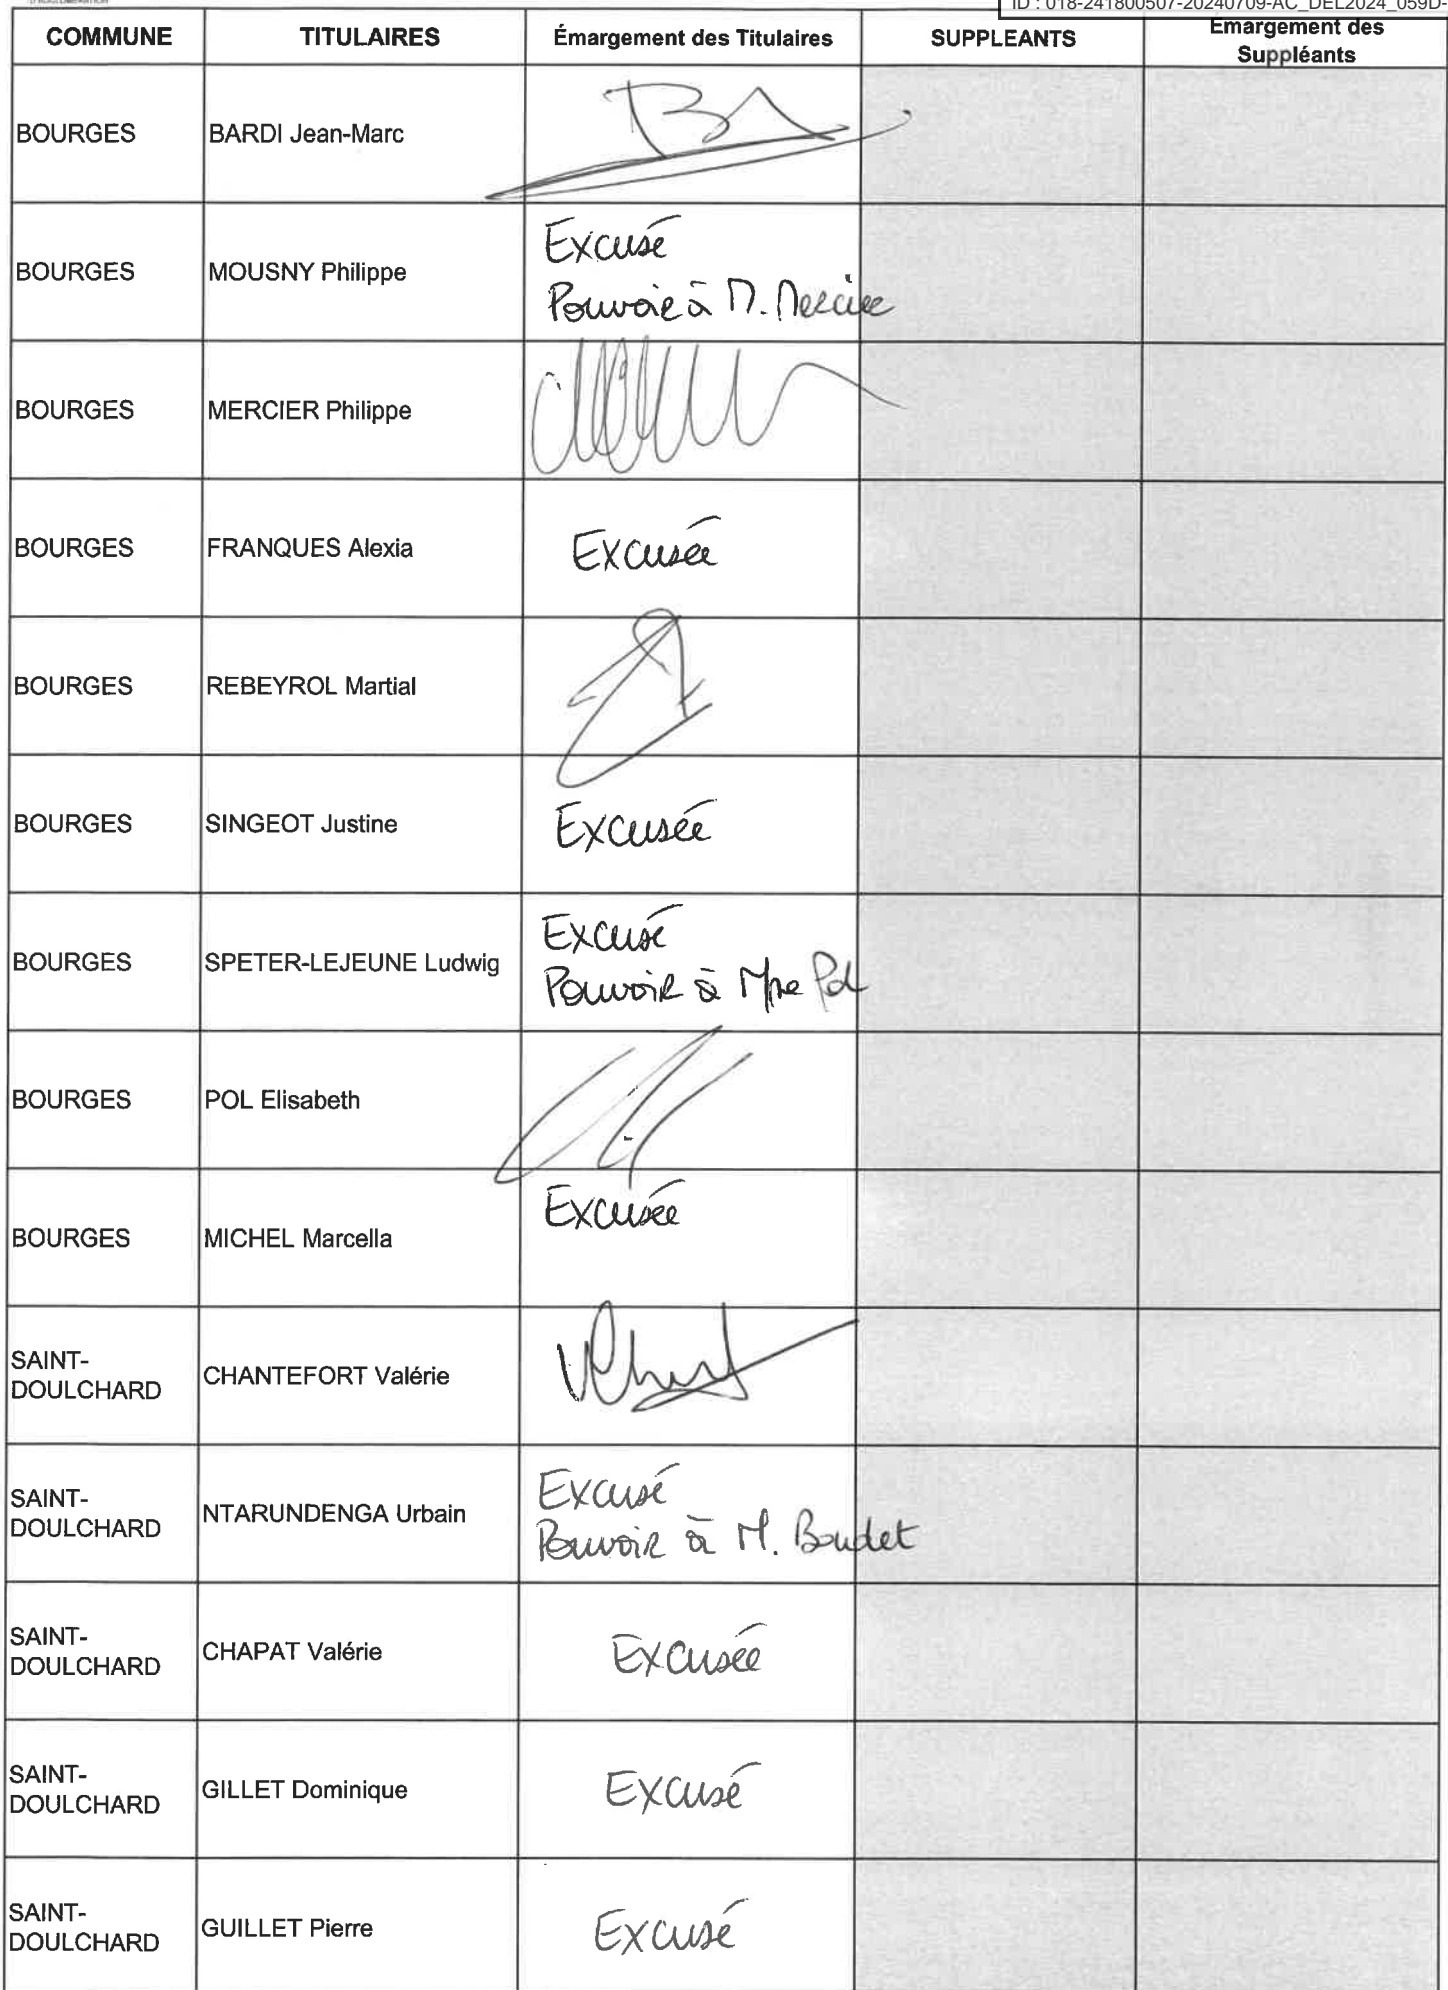 ID : 018-241800507-20240709-AC_DEL2024_059D-
COMMUNE TITULAIRES Émargement des Titulaires SUPPLEANTS Émargement des
Suppléants
BOURGES BARDI Jean-Marc
BOURGES MOUSNY Philippe Excusé
Pouvoir à M. Mercier
BOURGES MERCIER Philippe
BOURGES FRANQUES Alexia Excusée
BOURGES REBEYROL Martial
BOURGES SINGEOT Justine Excusée
BOURGES SPETER-LEJEUNE Ludwig Excusé
Pouvoir à Mme Pol
BOURGES POL Elisabeth
BOURGES MICHEL Marcella Excusée
SAINT-
DOULCHARD CHANTEFORT Valérie
SAINT-
DOULCHARD NTARUNDENGA Urbain Excusé
Pouvoir à M. Boudet
SAINT-
DOULCHARD CHAPAT Valérie Excusée
SAINT-
DOULCHARD GILLET Dominique Excusé
SAINT-
DOULCHARD GUILLET Pierre Excusé